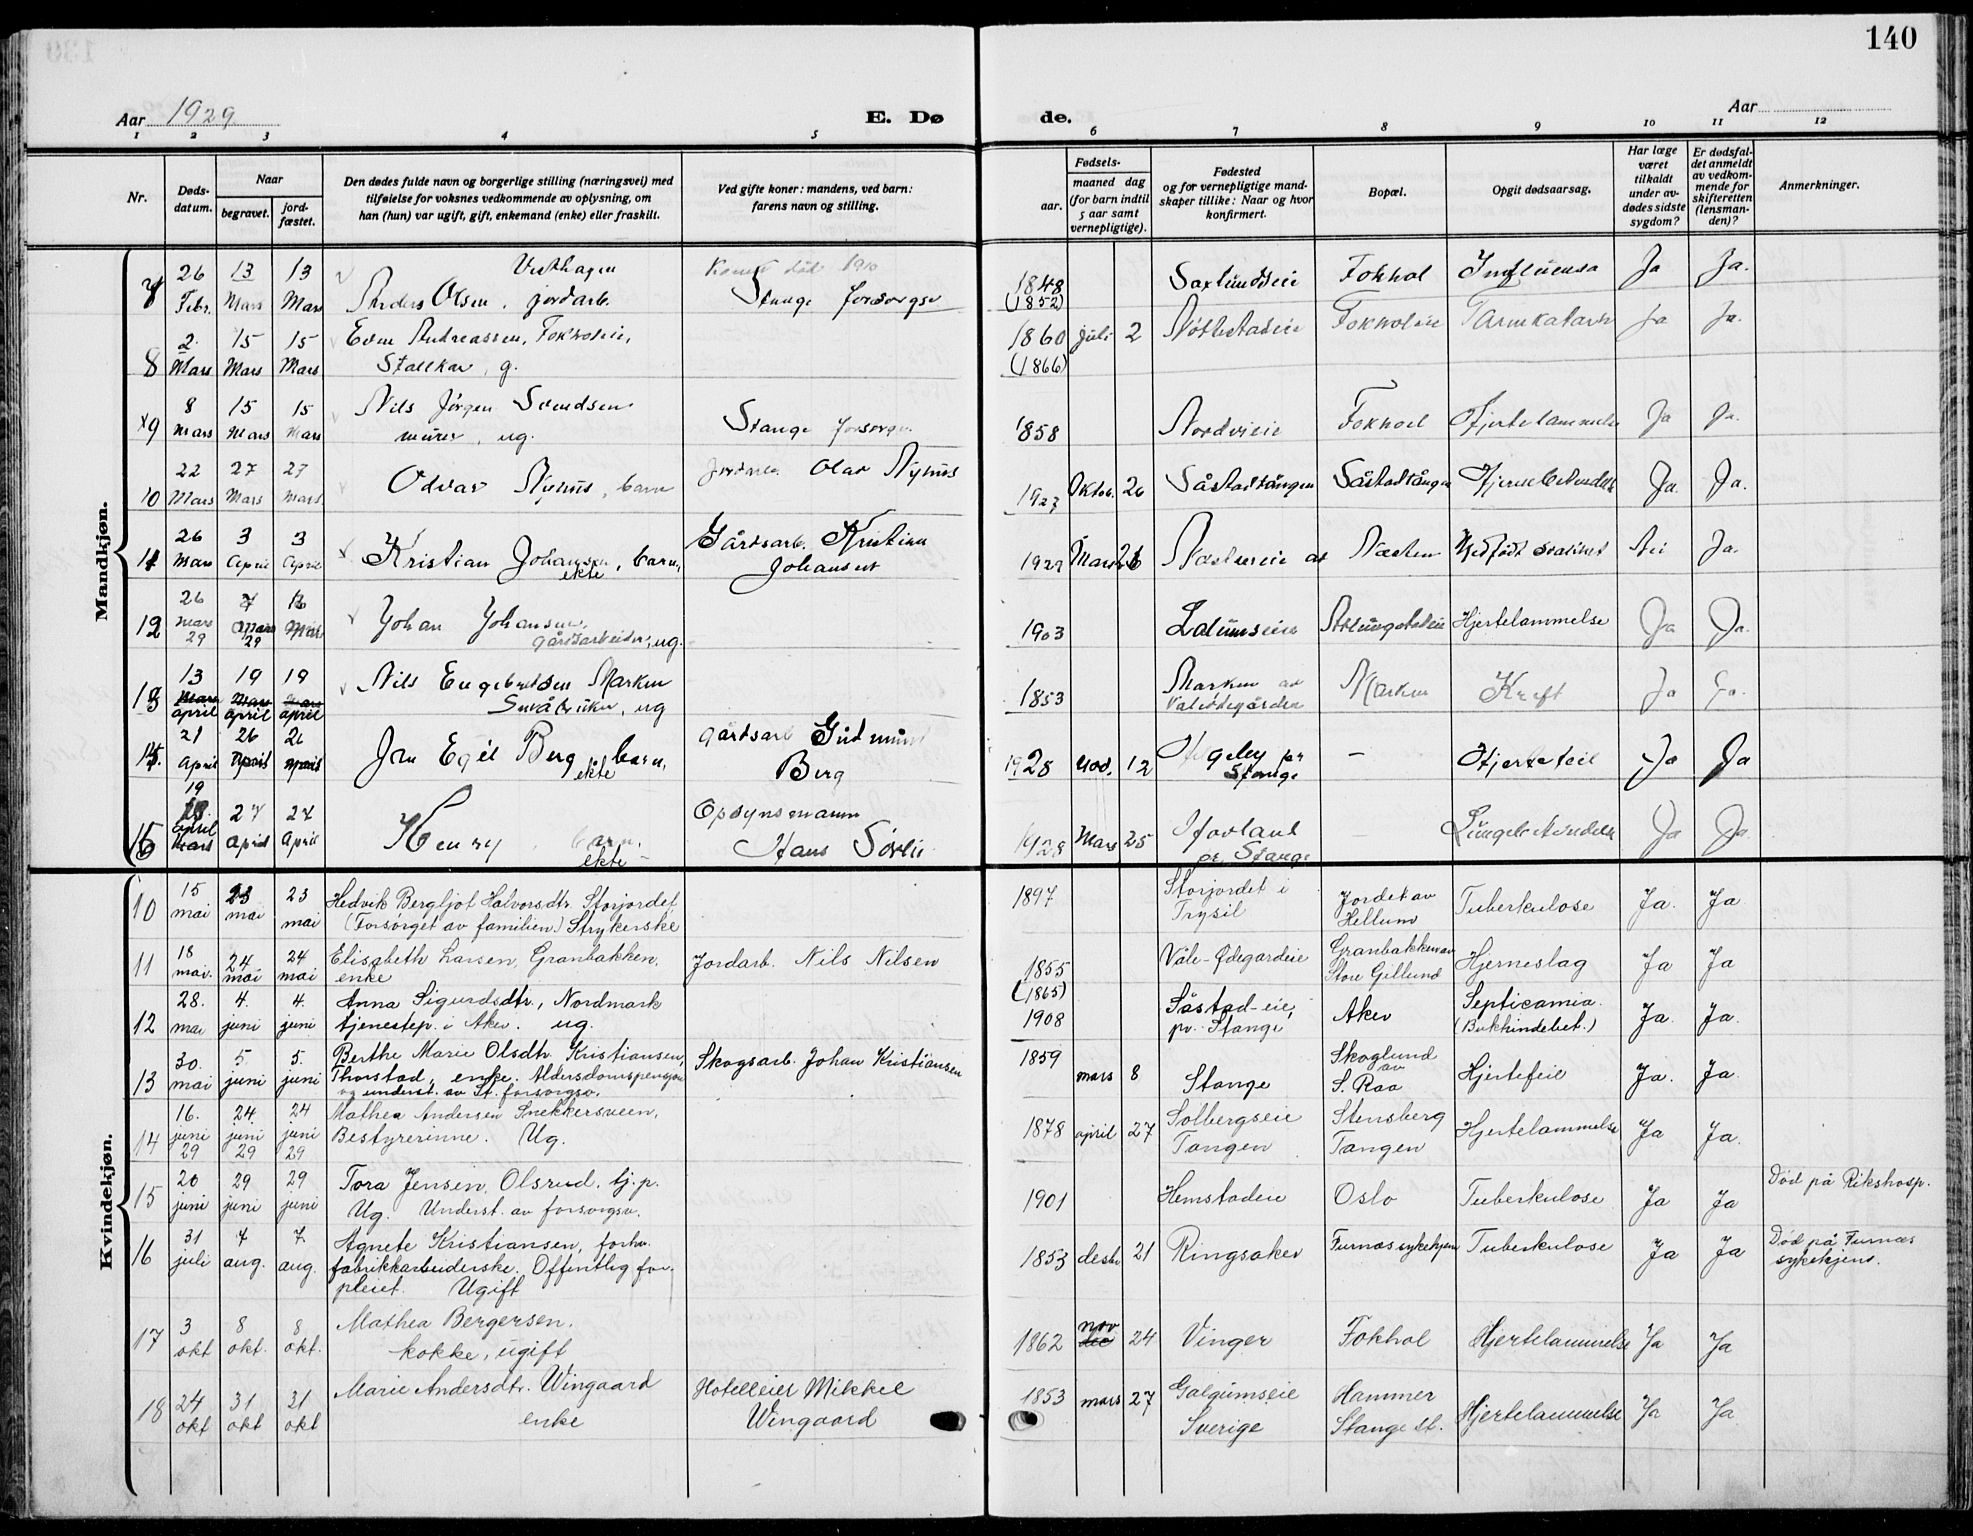 140
Aar 1929
E. Dø
de.
Aar
1 2 3 4 5 6 7 8 9 10 11 12
Nr.
Døds-
datum.
Naar
begravet.
jord-
fæstet.
Den dødes fulde navn og borgerlige stilling (næringsvei) med
tilføielse for voksnes vedkommende av oplysning, om
han (hun) var ugift, gift, enkemand (enke) eller fraskilt.
Ved gifte koner: mandens, ved barn:
farens navn og stilling.
Fødsels-
aar.
maaned dag
(for barn indtil
5 aar samt
vernepligtige).
Fødested
og for vernepligtige mand-
skaper tillike: Naar og hvor
konfirmert.
Bopæl.
Opgit dødsaarsag.
Har læge
været
tilkaldt
under av-
dødes sidste
sygdom?
Er dødsfal-
det anmeldt
av vedkom-
mende for
skifteretten
(lensman-
den)?
Anmerkninger.
Mandkjøn.
7 26 Febr. 13 Mars 13 Mars Vesthagen
Anders Olsen, jordarb. Kone død 1910
Stange forsorgsv 1848
(1852) Saxlundseie Fokhol Influensa Ja Ja.
8 2. Mars 15 Mars 15 Mars Even Andreassen, Fokholeie,
Stallkar, g. 1860
(1866) juli 2 Nøttestadeie Fokholeie Tarmkatarh Ja Ja.
9 8 Mars 15 Mars 15 Mars Nils Jörgen Svendsen
murer, ug. Stange forsorgsv. 1858 Nordvieie Fokhol Hjertelammelse Ja Ja.
10 22 Mars 27 Mars 27 Mars Odvar Nyhus, barn Jordarb. Olav Nyhus 1927 Oktob. 26 Såstadtangen Såstadtangen Ja. Ja.
11 26 Mars 3 April 3 April Kristian Johansen, barn,
ekte Gårdsarb. Kristian
Johansen 1929 Mars 26 Næsteneie av Næsten Medfödt svakhet Nei Ja.
12 26 mars 29 7 29 Johan Johansen,
gårdsarbeider, ug. 1903 Lalumseie Hjertelammelse Ja Ja.
13 13 april 19 april 19 april Nils Engebretsen Marken
Småbruker, ug 1853 Marken av
Marken Kreft Ja Ja.
15. 21 April 26 April 26 April Jon Egil Berg, barn,
ekte gårdsarb Gudmund
Berg 1928 nov. 12 pr
Stange – Hjertefeil Ja Ja
16 19 April 27 April 27 April Henry, barn,
ekte – Opsynsmann
Hans Sörlie 1928 Mars 25 Hovland
pr. Stange – Ja Ja
Kvindekjøn.
10 15 mai 23 mai 23 mai Hedvik Bergljot Halvorsdtr. Storjordet
(Forsørget av familien) Strykerske 1897 Storjordet i
Trysil Jordet av
Hellum Tuberkulose Ja. Ja
11 18 mai. 24 mai 24 mai Elisabeth Larsen, Granbakken,
enke Jordarb. Nils Nilsen 1855
(1865) Vale-Ødegardeie Granbakken av
Store Gillund Hjerneslag Ja Ja
12 28. mai 4. juni 4. juni Anna Sigurdsdtr., Nordmark
tjenestep. i Aker. ug. 1908 Såstad-eie,
pr. Stange Aker Septicamia.
(Bukhindebet.) Ja. Ja.
13 30. mai 5 juni 5. juni Berthe Marie Olsdtr. Kristiansen,
Thorstad, enke. Aldersdomspensjon
og underst. av St. forsorgsv. Skogsarb. Johan Kristiansen 1859 mars 8 Stange Skoglund
av
S. Raa Hjertefeil Ja. Ja.
14 16. juni 29 24 juni 29 24 juni 29 Mathea Andersen Snekkersveen,
Bestyrerinne. Ug. 1878 april 27 Solbergseie
Tangen Stensberg
Tangen Hjertelammelse Ja Ja.
15 20 juni 29 juni 29 juni Tora Jensen, Olsrud, tj.p.
Ug. Underst. av forsorgsv. 1901 Hemstadeie Oslo Tuberkulose Ja Ja Død på Rikshosp.
16 31 juli 7 aug. 7. aug. Agnete Kristiansen, forhv.
fabrikkarbeiderske. Offentlig for-
pleiet. Ugift 1853 desbr 21 Ringsaker Furnes sykehjem Tuberkulose Ja Ja Død på Furnes
sykehjem.
17 3 okt 8 okt. 8 okt. Mathea Bergersen,
kokke, ugift 1862 nov 24 Vinger Fokhol Hjertelammelse Ja Ja
18 24 okt 31 okt 31 okt Marie Andersdtr. Wingaard
enke Hotelleier Mikkel
Wingaard 1853 mars 27 Galgumseie
Sverige Hammer
Stange st. Hjertelammelse Ja Ja